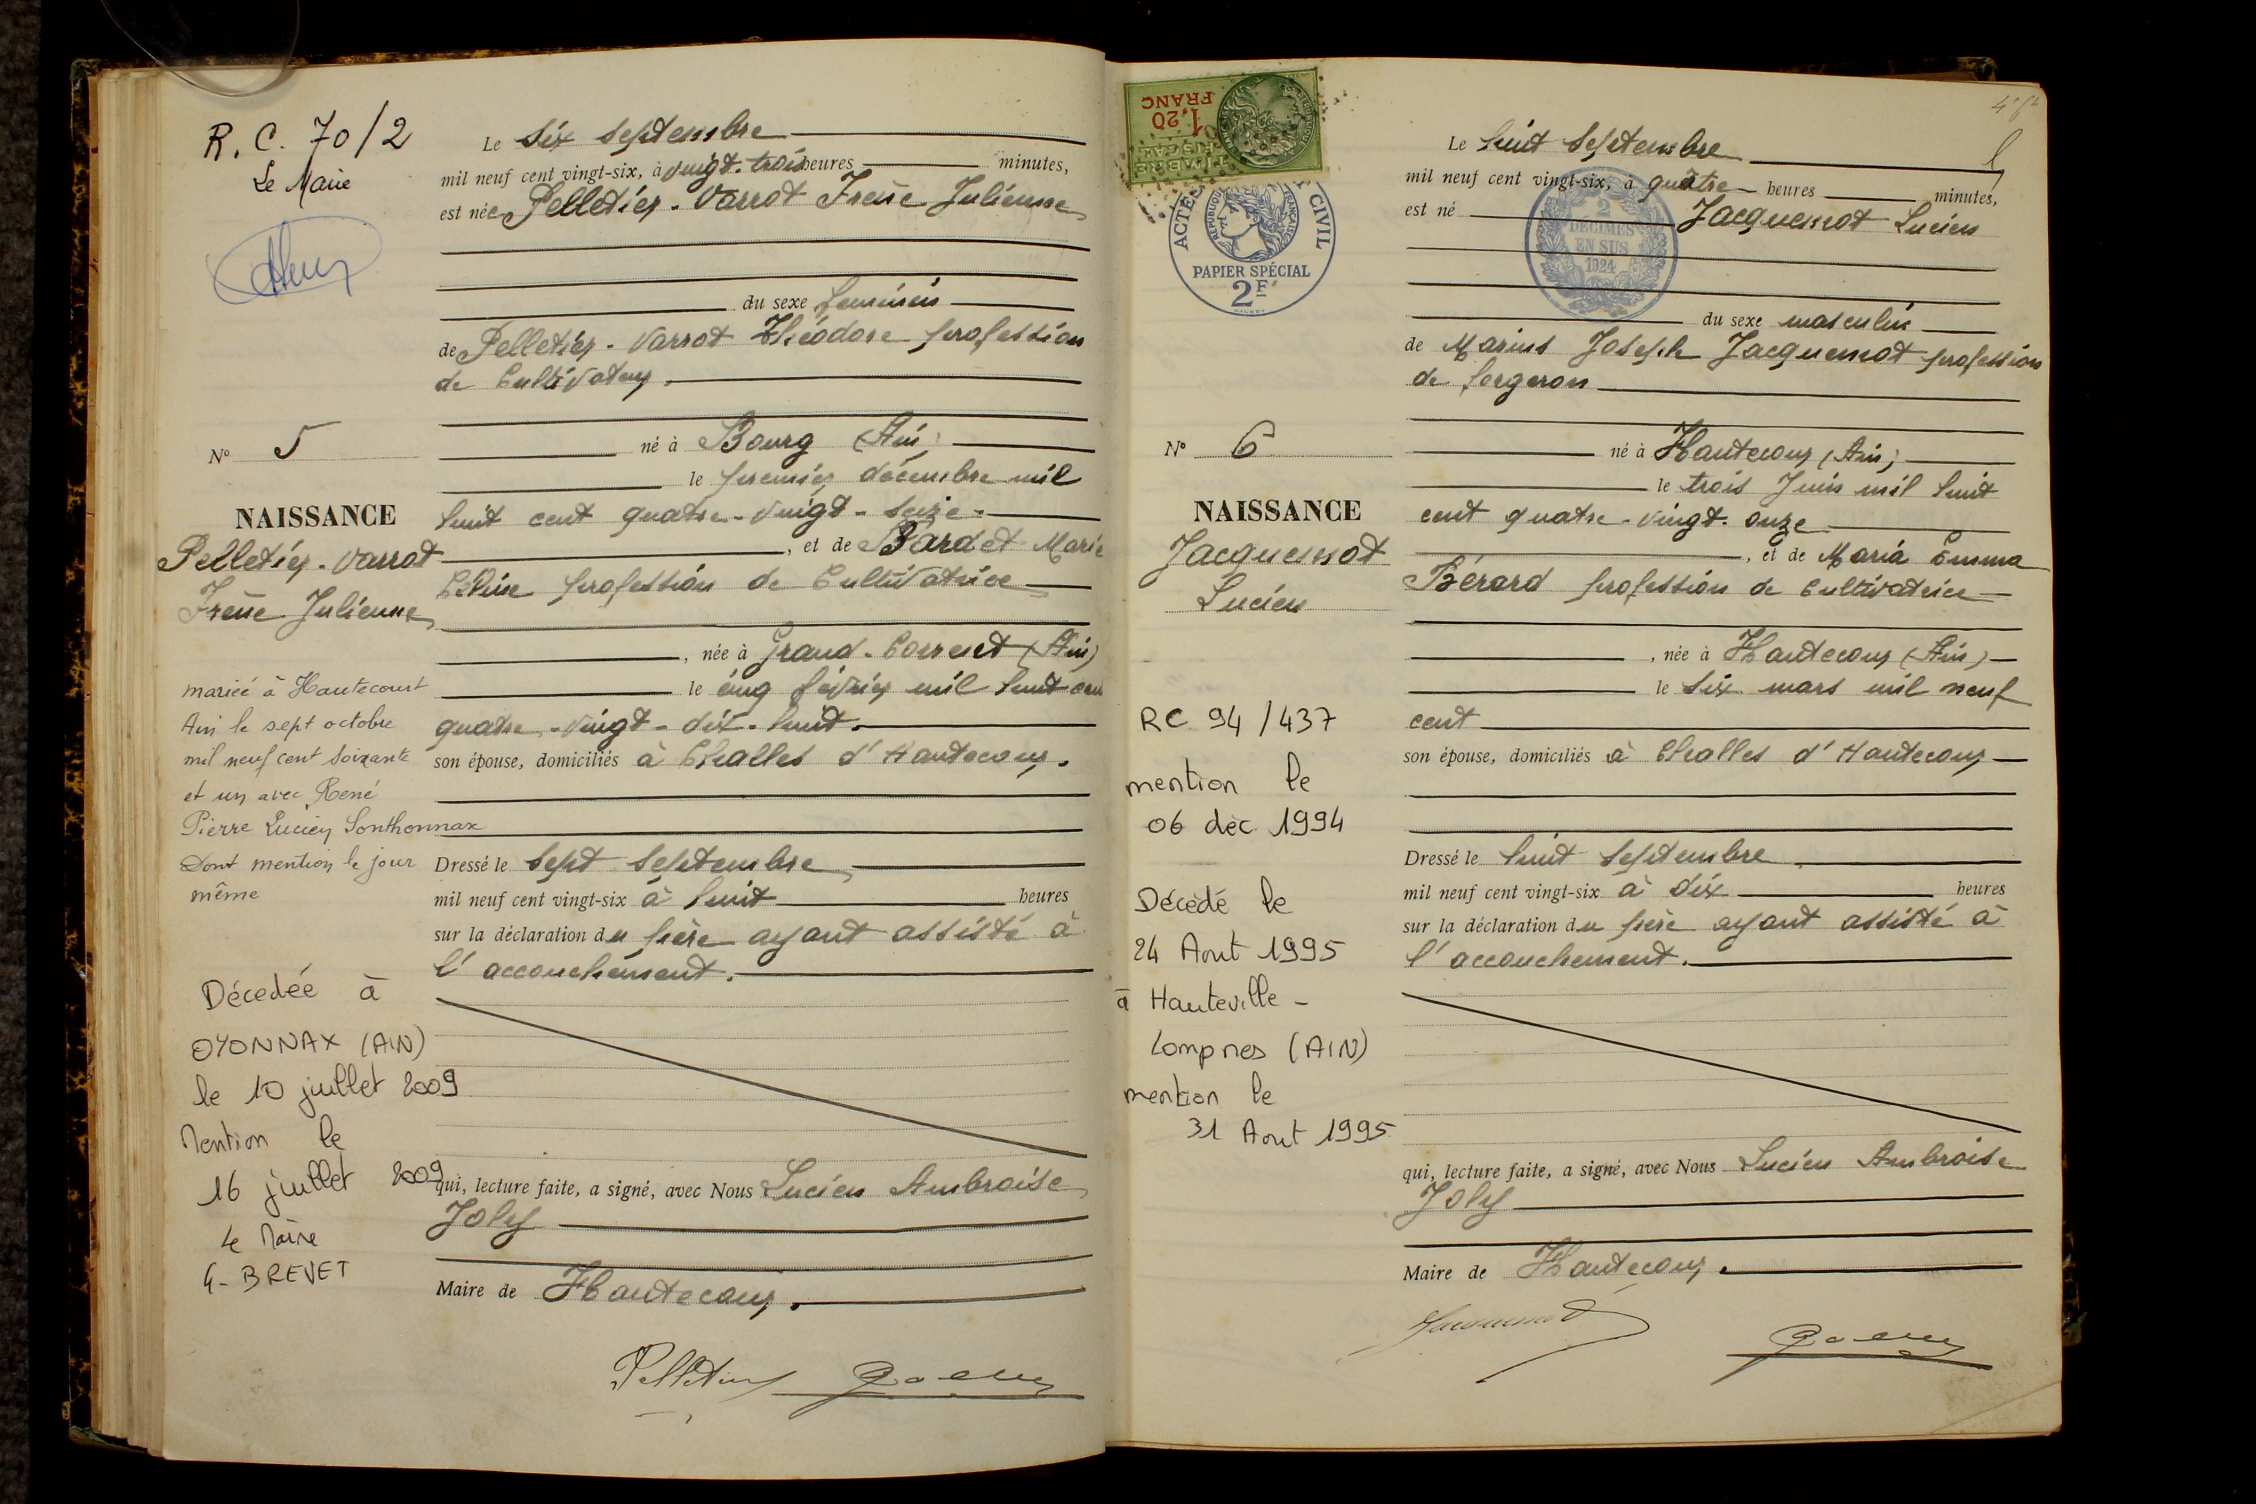 R. C. 70/2
Le Maire
N° 5
NAISSANCE
Pelletier-Varrot
Irène Julienne
mariée à Hautecourt
Ain le sept octobre
mil neuf cent soixante
et un avec René
Pierre Lucien Sonthonnax
Dont mention le jour
même
Décedée à
OYONNAX (AIN)
le 10 juillet 2009
Mention le
16 juillet 2009
Le Maire
G. BREVET
Le six septembre
mil neuf cent vingt-six, à vingt-trois heures minutes,
est née Pelletier-Varrot Irène Julienne
du sexe féminin
de Pelletier-Varrot Théodore profession
de Cultivateur.
né à Bourg (Ain)
le premier décembre mil
huit cent quatre-vingt-seize.
, et de Bardet Marie
Céline profession de Cultivatrice
, née à Grand-Corent (Ain)
le cinq février mil huit cent
quatre-vingt-dix-huit.
son épouse, domiciliés à Challes d'Hautecour.
Dressé le sept septembre
mil neuf cent vingt-six à huit heures
sur la déclaration du père ayant assisté à
l'accouchement.
qui, lecture faite, a signé, avec Nous Lucien Ambroise
Joly
Maire de Hautecour.
Pelletier
1,20
FRANC
TIMBRE
FISCAL
ACTES CIVIL
RÉPUBLIQUE FRANÇAISE
PAPIER SPÉCIAL
2F
N° 6
NAISSANCE
Jacquemot
Lucien
RC 94/437
mention le
06 dec 1994
Décédé le
24 Aout 1995
à Hauteville-
Lompnes (AIN)
mention le
31 Aout 1995
Le huit septembre
mil neuf cent vingt-six, à quatre heures minutes,
est né Jacquemot Lucien
2
DÉCIMES
EN SUS
1924
du sexe masculin
de Marius Joseph Jacquemot profession
de forgeron
né à Hautecour (Ain)
le trois Juin mil huit
cent quatre-vingt-onze
, et de Maria Emma
Bérard profession de Cultivatrice
, née à Hautecour (Ain)
le six mars mil neuf
cent
son épouse, domiciliés à Challes d'Hautecour
Dressé le huit septembre
mil neuf cent vingt-six à dix heures
sur la déclaration du père ayant assisté à
l'accouchement.
qui, lecture faite, a signé, avec Nous Lucien Ambroise
Joly
Maire de Hautecour.
Jacquemot